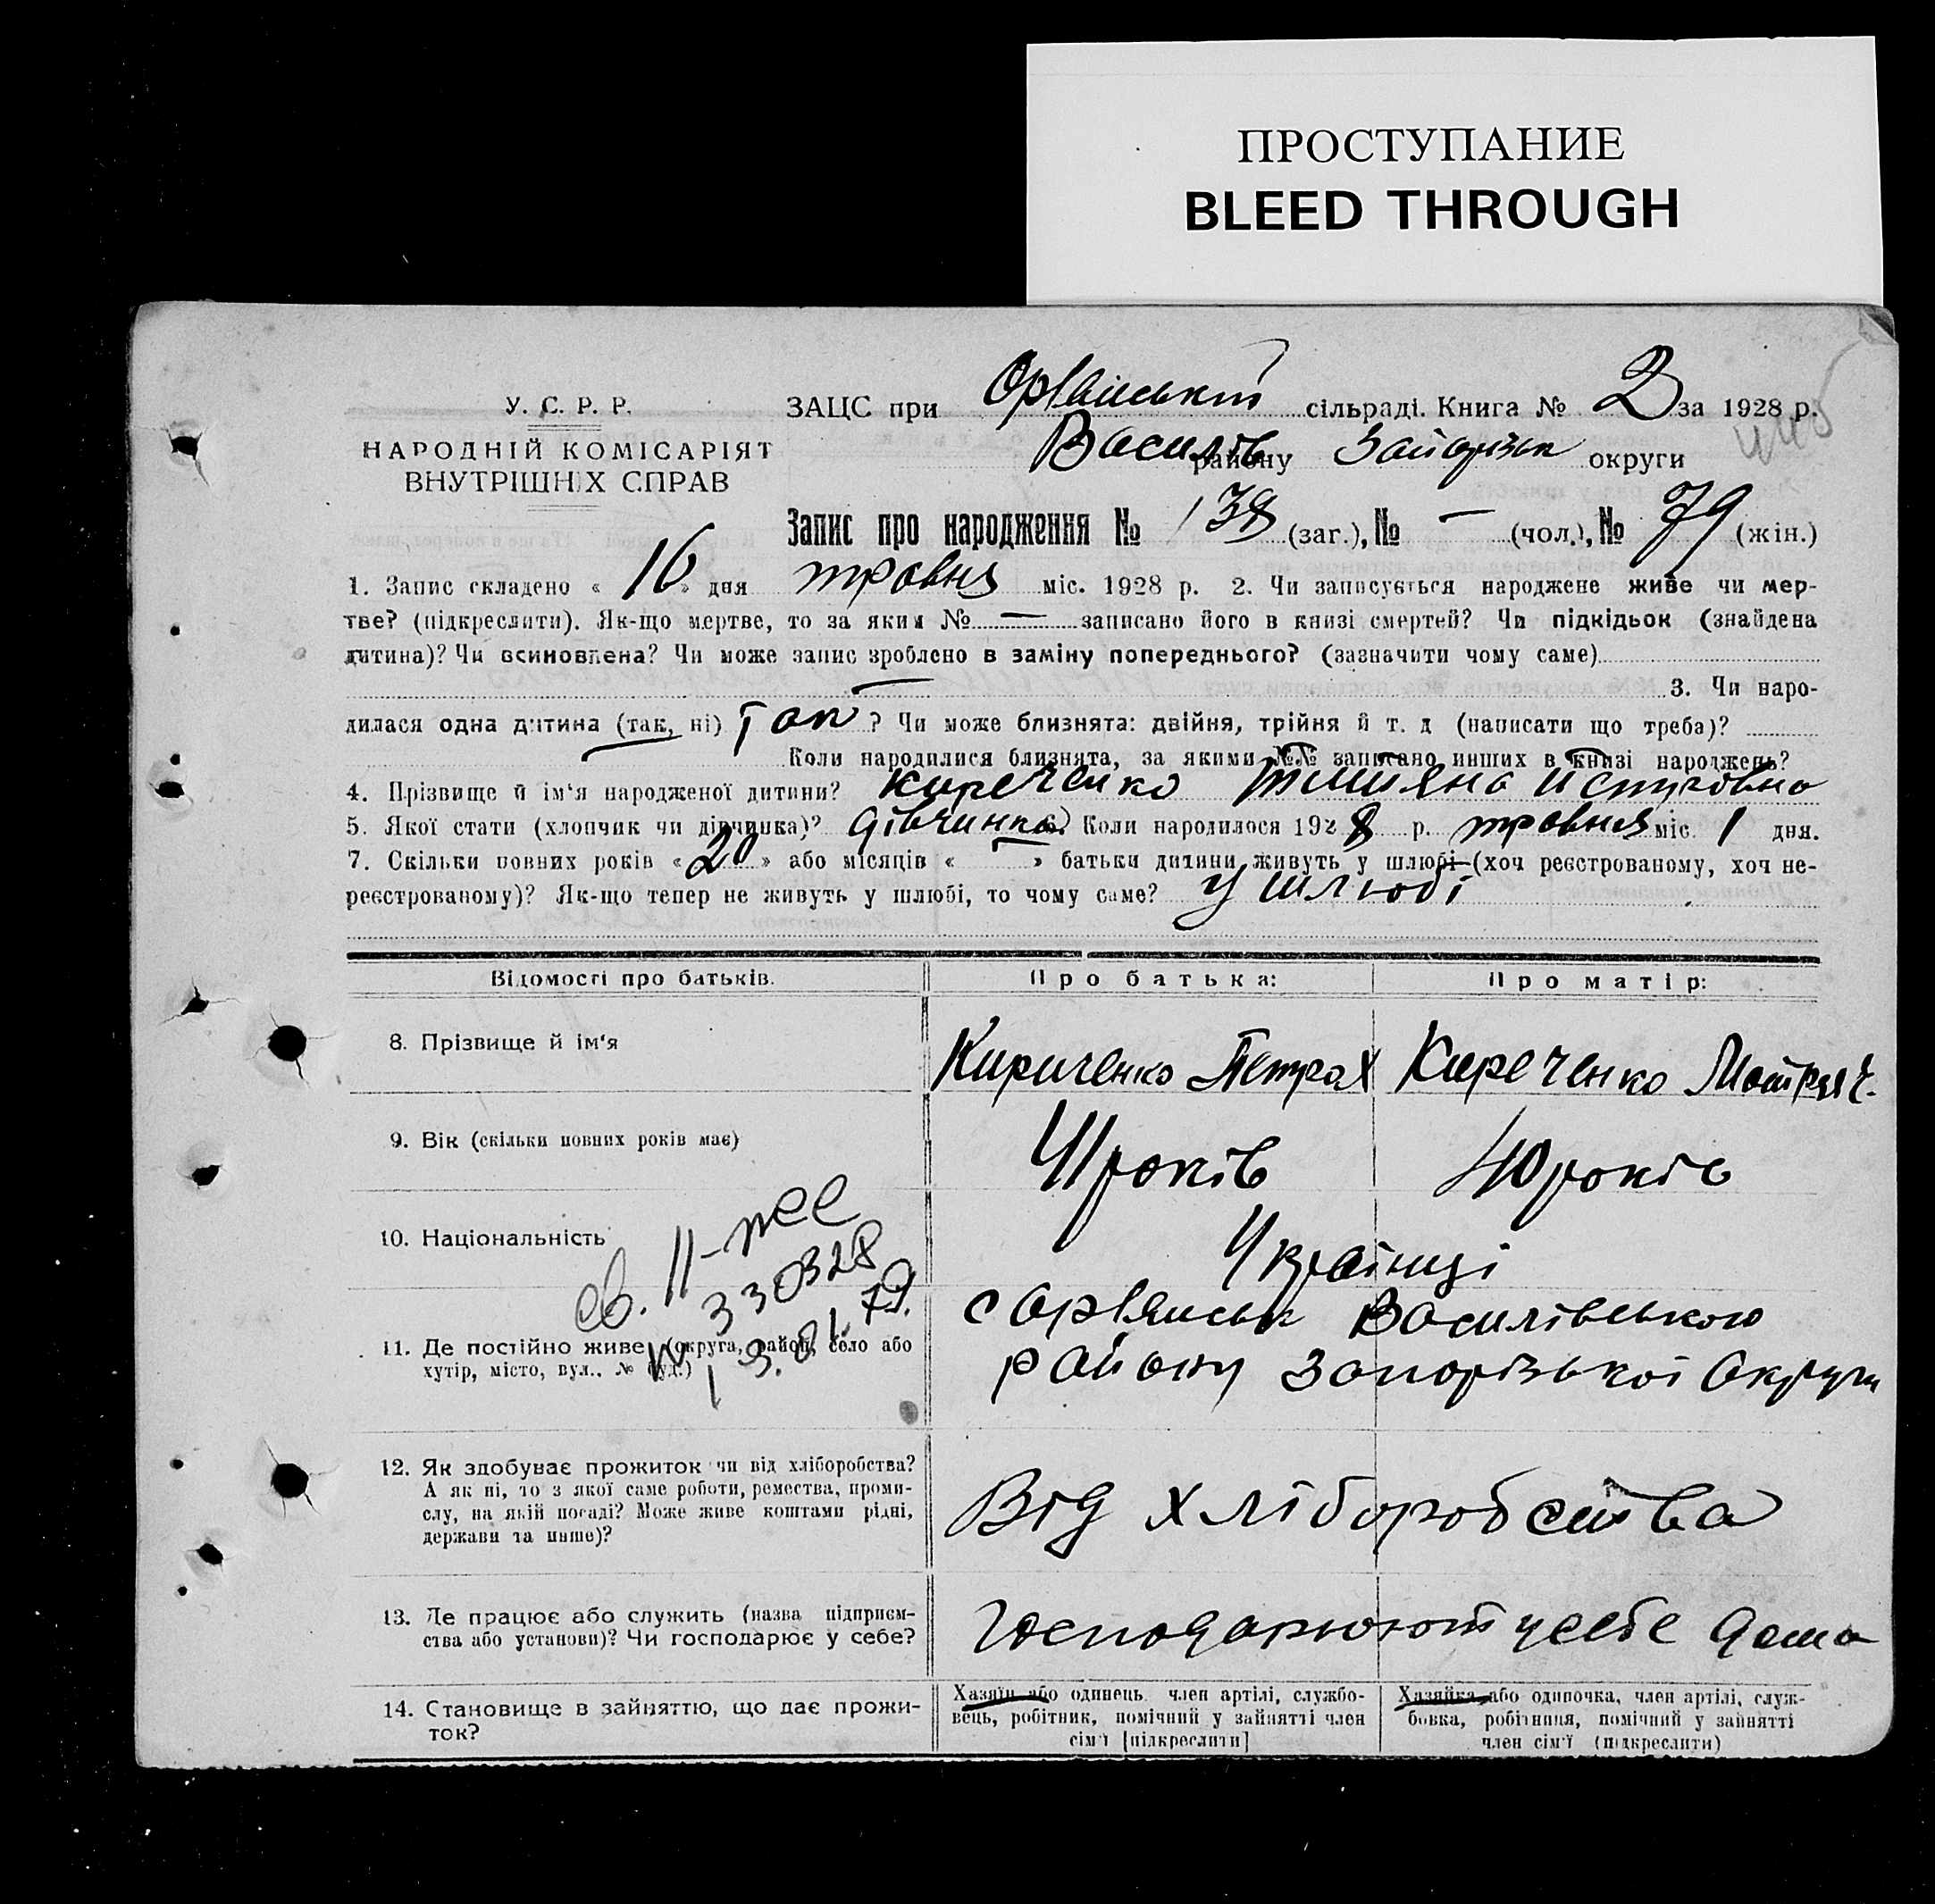 ПРОСТУПАНИЕ
BLEED THROUGH
У. С. Р. Р.
НАРОДНІЙ КОМІСАРІЯТ
ВНУТРІШНІХ СПРАВ
ЗАЦС при Орлянській сільраді. Книга № 2 за 1928 р.
Василів району Запорізьк округи
Запис про народження № 138 (заг.), № — (чол.), № 79 (жін.)
1. Запис складено « 16 » дня травня міс. 1928 р. 2. Чи записується народжене живе чи мер-
тве? (підкреслити). Як-що мертве, то за яким № — записано його в книзі смертей? Чи підкідьок (знайдена
дитина)? Чи всиновлена? Чи може запис зроблено в заміну попереднього? (зазначити чому саме)
— 3. Чи наро-
дилася одна дитина (так, ні) Так ? Чи може близнята: двійня, трійня й т. д (написати що треба)?
Коли народилися близнята, за якими №№ записано инших в книзі народжень?
4. Прізвище й ім'я народженої дитини? Киреченко
5. Якої стати (хлопчик чи дівчинка)? дівчинка 6. Коли народилося 1928 р. травня міс. 1 дня.
7. Скільки повних років « 20 » або місяців « — » батьки дитини живуть у шлюбі (хоч реєстрованому, хоч не-
реєстрованому)? Як-що тепер не живуть у шлюбі, то чому саме? у шлюбі
Відомості про батьків. Про батька: Про матір:
8. Прізвище й ім'я Кириченко Петро Х Киреченко Мотря Є.
9. Вік (скільки повних років має) 41 років 40 років
10. Національність Українці
св. II-ЖС
330328
19.01.79.
11. Де постійно живе (округа, район, село або
хутір, місто, вул.. № буд.)
с Орлянськ Василівського
району Запорізької Округи
12. Як здобуває прожиток чи від хліборобства?
А як ні, то з якої саме роботи, ремества, проми-
слу, на якій посаді? Може живе коштами рідні,
держави та инше)?
Від хліборобства
13. Де працює або служить (назва підприєм-
ства або установи)? Чи господарює у себе?
Господарюют у себе дома
14. Становище в зайняттю, що дає прожи-
ток?
Хазяїн або одинець член артілі, службо-
вець, робітник, помічний у зайнятті член
сім'ї [підкреслити]
Хазяйка або одиночка, член артілі, служ-
бовка, робітниця, помічний у зайнятті
член сім'ї (підкреслити)